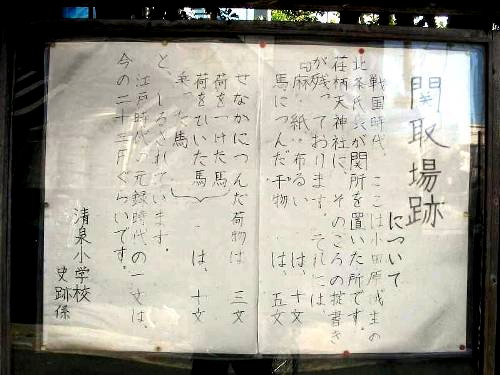 関取場跡
について
戦国時代、ここは小田原城主の
北条氏長が関所を置いた所です。
荏柄天神社に、そのころの掟書き
が残っております。それには、
麻・紙・布るい は、十文
馬につんだ干物 は、五文
せなかにつんだ荷物は 三文
荷をつけた馬
荷をひいた馬 は、十文
乗った馬
と、しるされています。
江戸時代の元録時代の一文は、
今の二十三円ぐらいです。
清泉小学校
史跡係